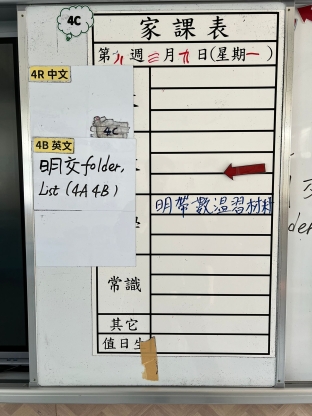 4C
家課表
第九週三月九日(星期一)
4R 中文
4C
4B 英文
明交folder,
List (4A 4B)
明帶數溫習材料
常識
其它
值日生